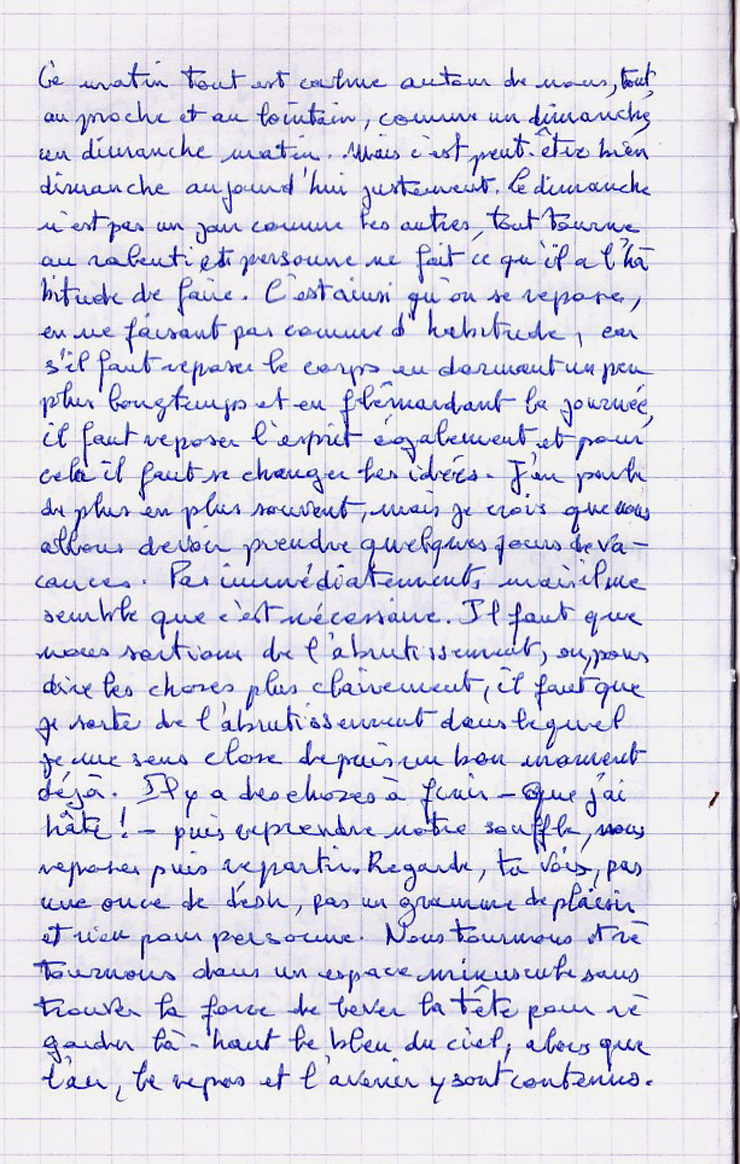 Ce matin tout est calme autour de nous, tout,
au proche et au lointain, comme un dimanche,
un dimanche matin. Mais c'est peut-être bien
dimanche aujourd'hui justement. Le dimanche
n'est pas un jour comme les autres, tout tourne
au ralenti et personne ne fait ce qu'il a l'ha
bitude de faire. C'est ainsi qu'on se repose,
en ne faisant pas comme d'habitude, car
s'il faut reposer le corps en dormant un peu
plus longtemps et en flêmardant la journée,
il faut reposer l'esprit également et pour
cela il faut se changer les idées. J'en parle
de plus en plus souvent, mais je crois que nous
allons devoir prendre quelques jours de va-
cances. Pas immédiatement, mais il me
semble que c'est nécessaire. Il faut que
nous sortions de l'abrutissement, ou, pour
dire les choses plus clairement, il faut que
je sorte de l'abrutissement dans lequel
je me sens close depuis un bon moment
déjà. Il y a des choses à finir – Que j'ai
hâte ! – puis reprendre notre souffle, nous
reposer puis repartir. Regarde, tu vois, pas
une once de désir, pas un gramme de plaisir
et rien pour personne. Nous tournons et re
tournons dans un espace minuscule sans
trouver la force de lever la tête pour re
garder là-haut le bleu du ciel, alors que
l'air, le repos et l'avenir y sont contenus.